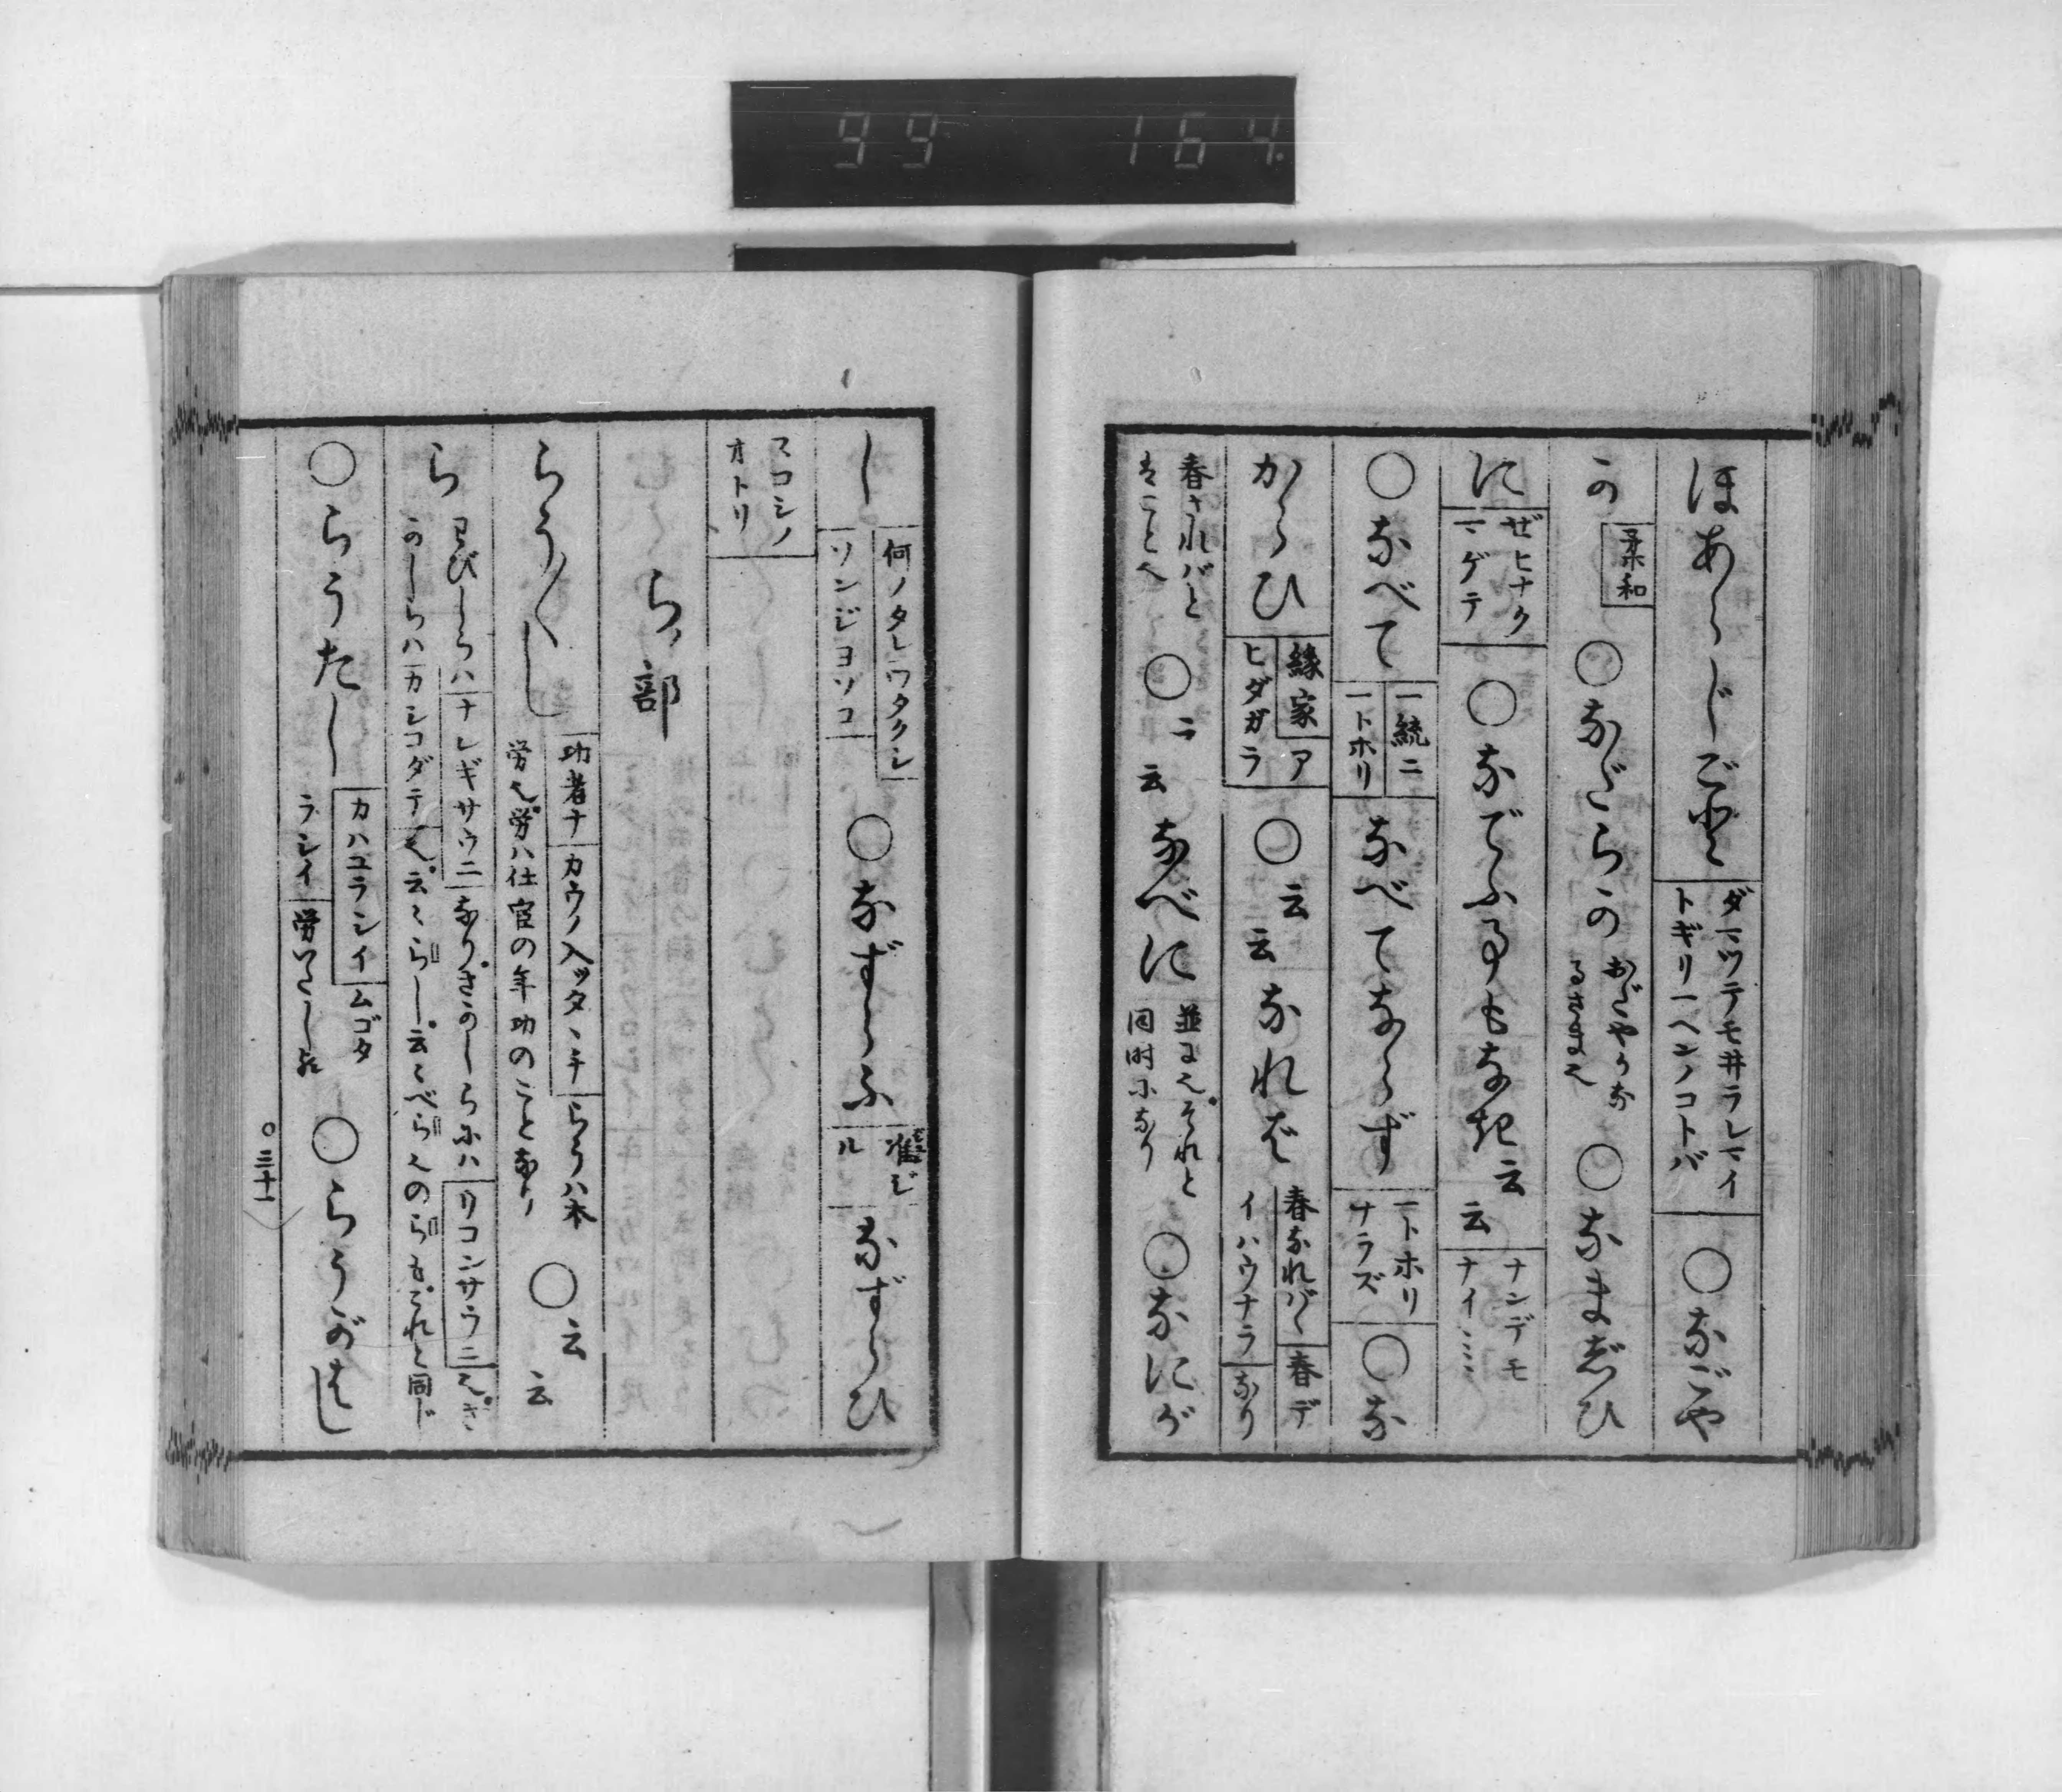 99 164
ほあらじごとく ダマツテモ井ラレマイ トギリ一ヘンノコトバ ○なごや
か 柔和 ○なだらか おだやかなるさまえ ○なまじひ
に ぜヒナク マゲテ ○なでふ事もなき云云 ナンデモナイ
○なべて 一統ニ 一トホリ なべてならず 一トホリナラズ ○な
からひ 縁家 アヒダガラ ○云云なれば 春なれバ 春デイハウナラ なり
春されバと ○ニ云云なべに 並にえ それと同時になり ○なにが
し 何ノタレ ワタクシ ソンジヨソコ ○なずらふ 准ジル なずらひ
スコシノオトリ
ら部
らう〳〵し 功者ナ カウノ入ツタヽチ らうハ本労え 労ハ仕官の年功のことなり ○云云
ら わびしらハ ナレギサウニ なり さかしらにハ リコンサウニ え さかしらハ カシコダテ え 云々らし 云々べらえのらも これと同ド
○らうたし カハユラシイ ムゴタラシイ 労いたし ○らうがはし
○三十一